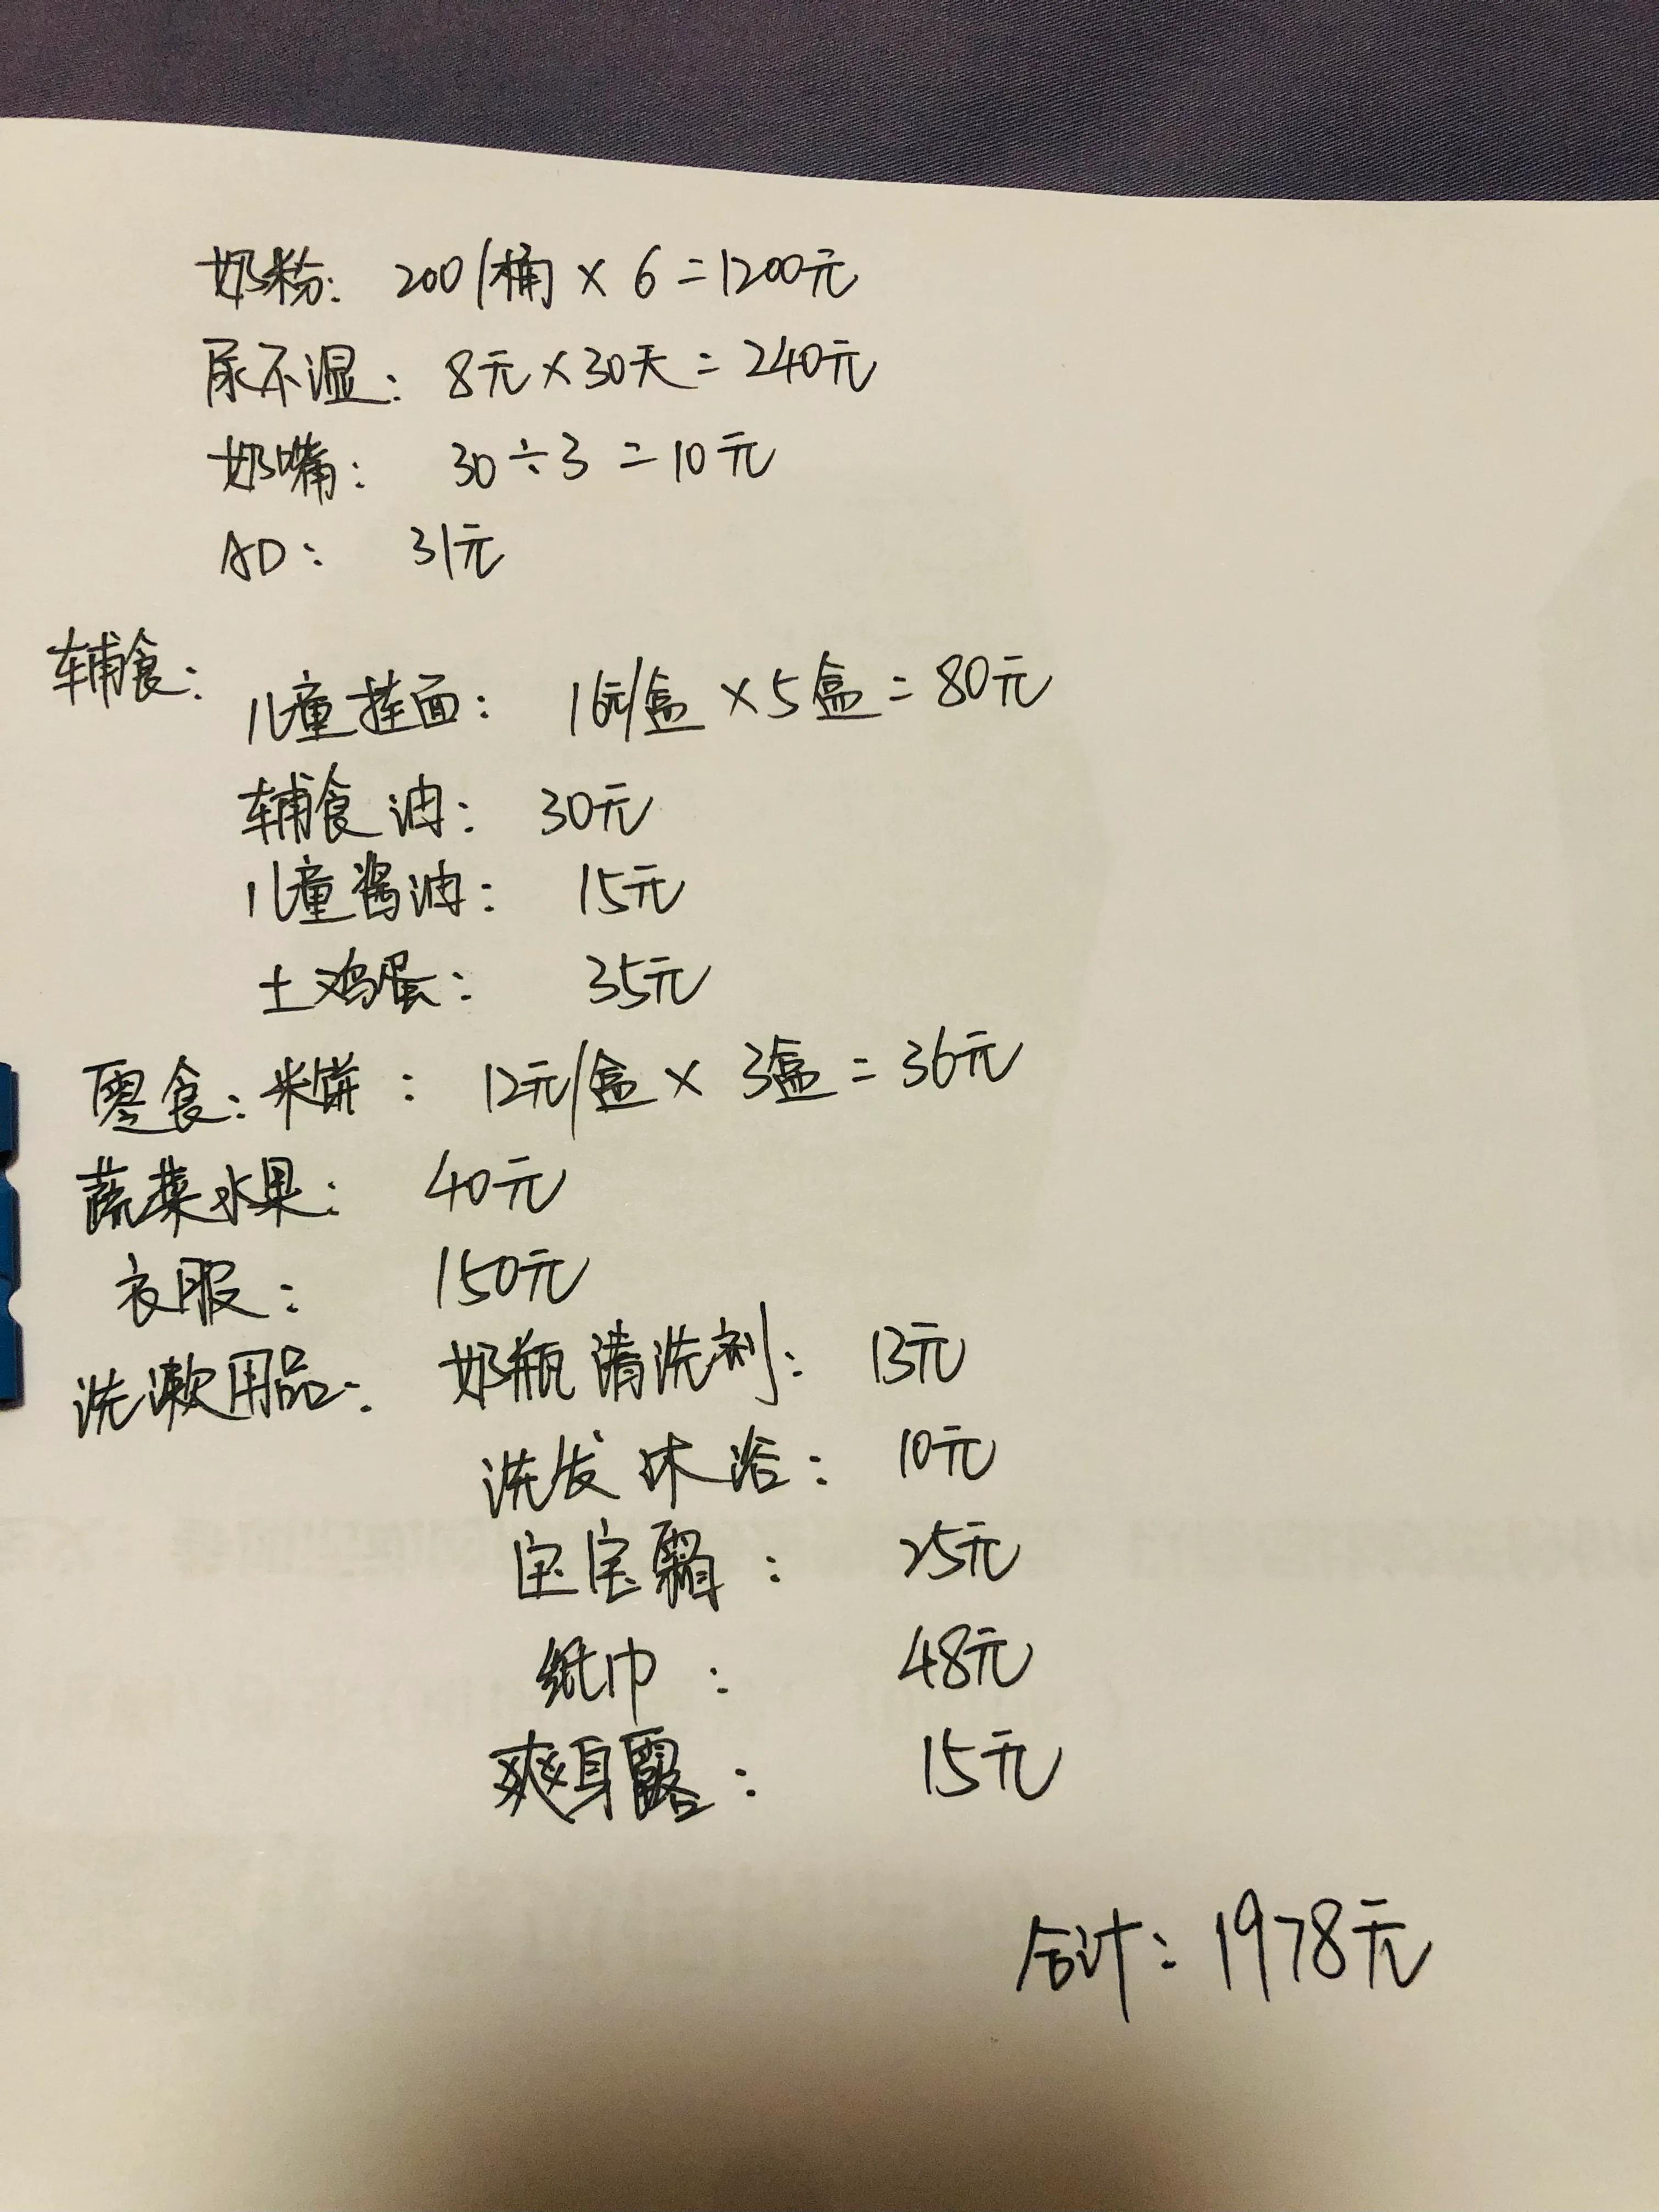 奶粉: 200/桶 × 6 = 1200元
尿不湿: 8元×30天 = 240元
奶嘴: 30÷3 = 10元
AD: 31元
辅食:
儿童挂面: 16元/盒 ×5盒 = 80元
辅食油: 30元
儿童酱油: 15元
土鸡蛋: 35元
零食: 米饼: 12元/盒 × 3盒 = 36元
蔬菜水果: 40元
衣服: 150元
洗漱用品: 奶瓶清洗剂: 13元
洗发沐浴: 10元
宝宝霜: 25元
纸巾: 48元
爽身露: 15元
合计: 1978元